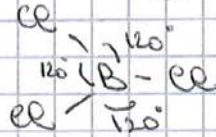 Cl
120°
120° B - Cl
Cl 120°